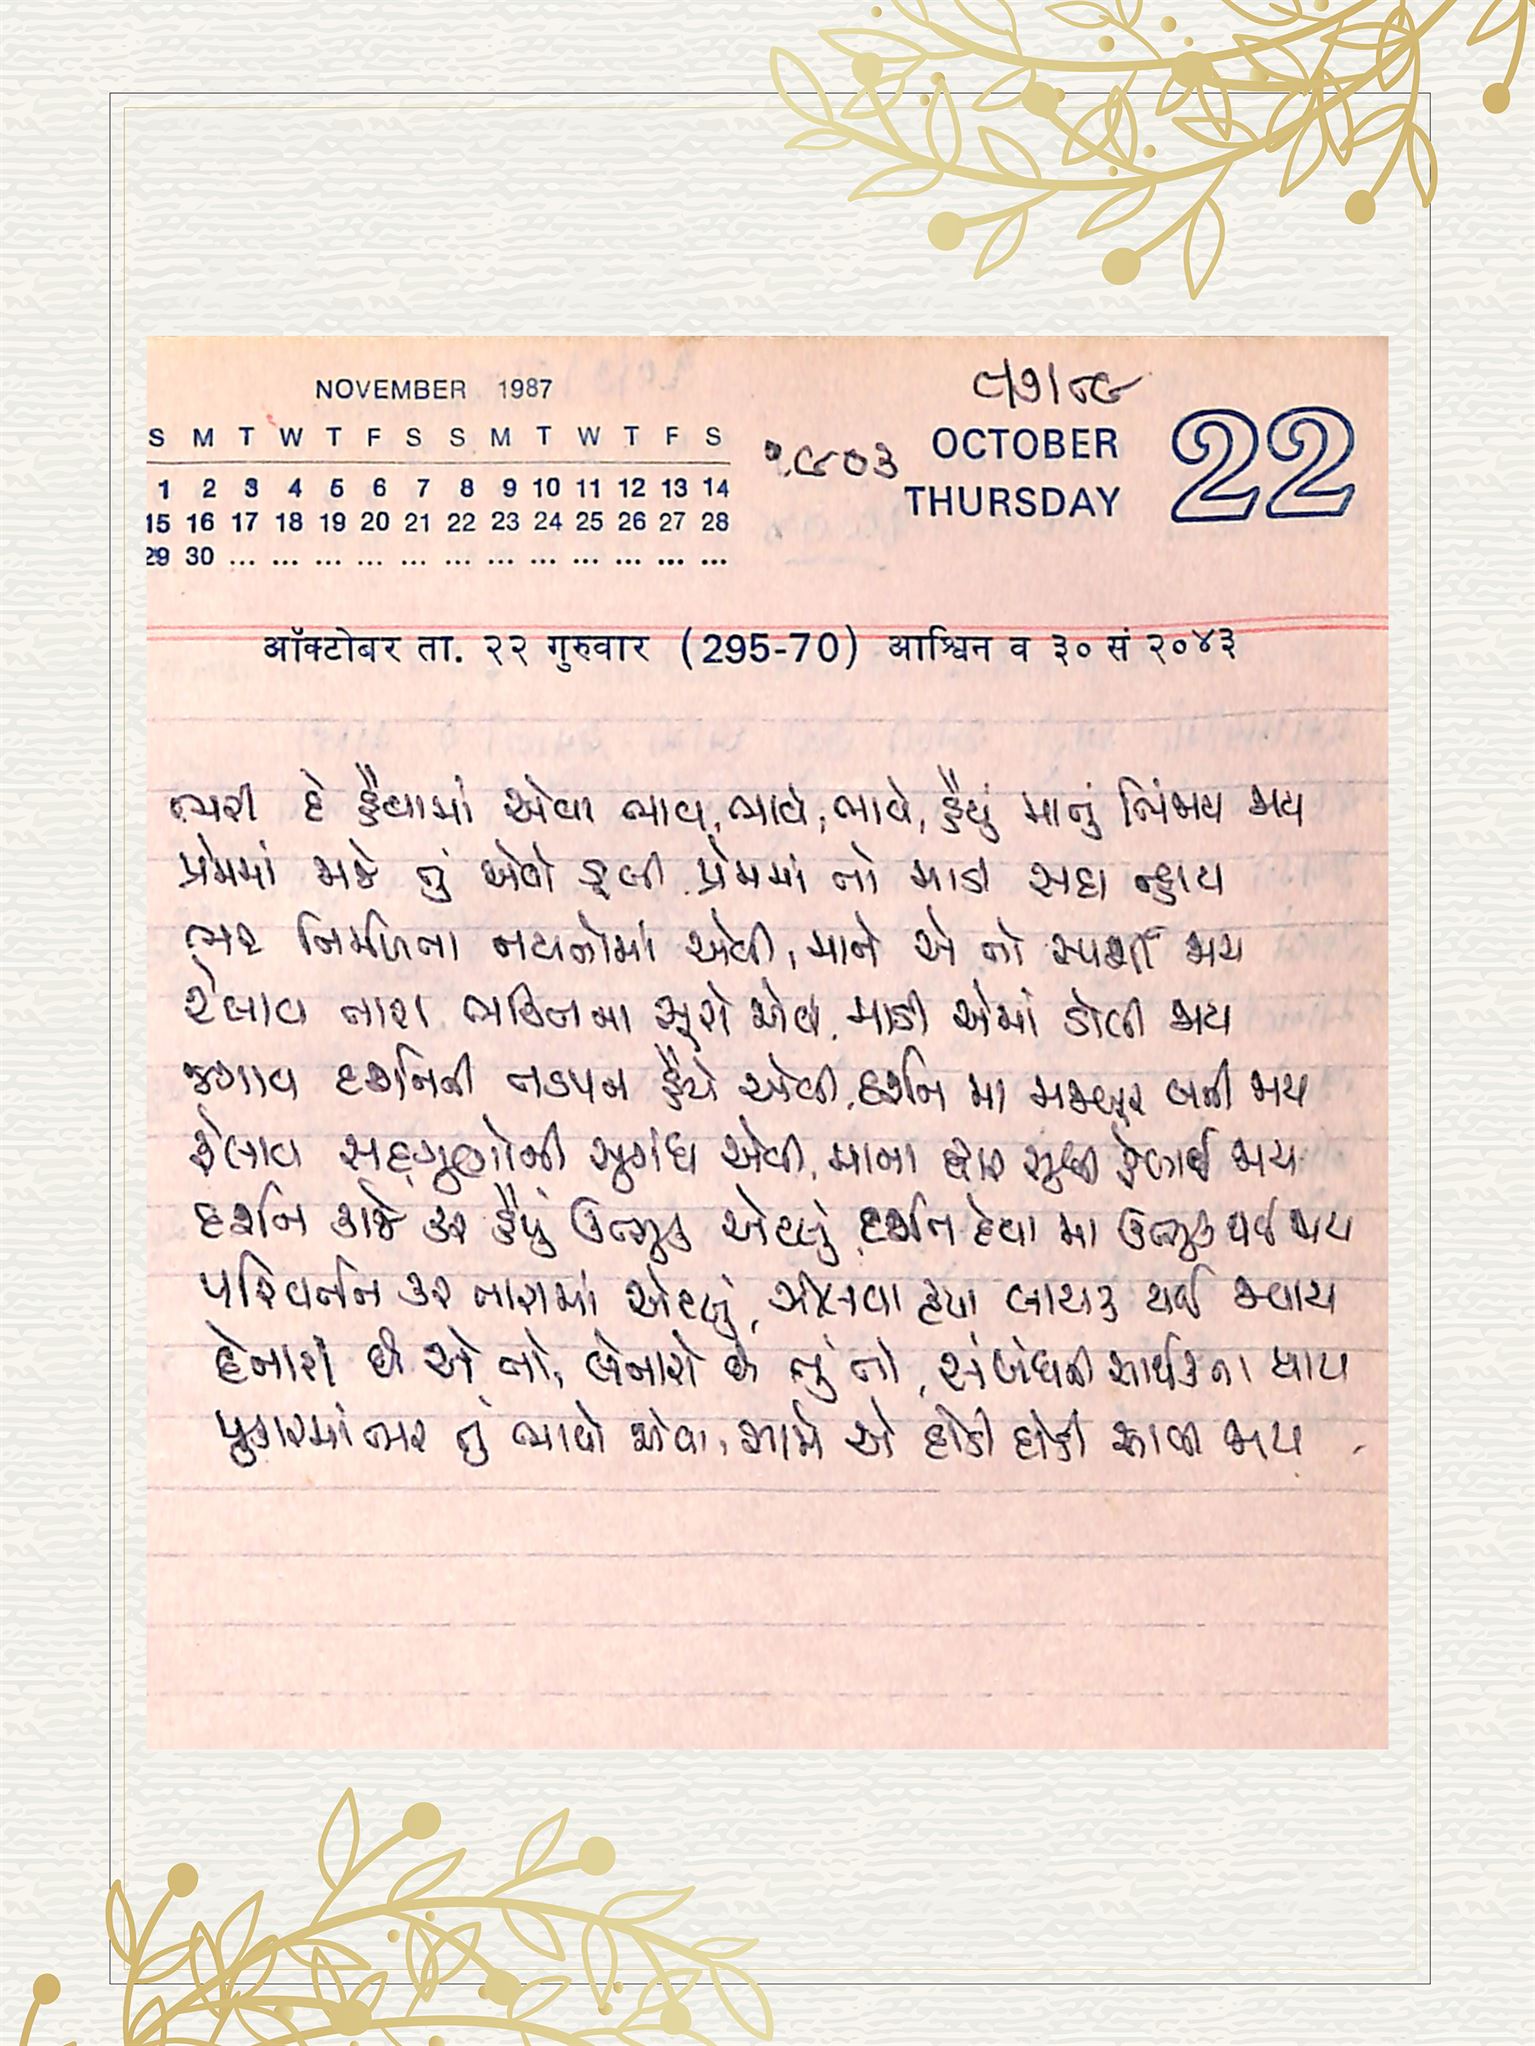 NOVEMBER 1987
S M T W T F S S M T W T F S
1 2 3 4 5 6 7 8 9 10 11 12 13 14
15 16 17 18 19 20 21 22 23 24 25 26 27 28
29 30 ... ... ... ... ... ... ... ... ... ... ... ...
૧૯૦૩
OCTOBER
THURSDAY
22
ऑक्टोबर ता. २२ गुरुवार (295-70) आश्विन व ३० सं २०४३
ભરી દે હૈયામાં એવા ભાવ, ભાવે, ભાવે, હૈયું માનું ભિંજાય જાય
પ્રેમમાં જાજે તું એવો ડૂબી, પ્રેમમાં તો માડી સદા ન્હાય
ભર નિર્મળતા નયનોમાં એવી, માને એ તો સ્પર્શી જાય
રેલાવ તારા ભક્તિના સૂરો એવા, માડી એમાં ડોલી જાય
જગાવ દર્શનની તડપન હૈયે એવી, દર્શન મા મજબૂર બની જાય
ફેલાવ સદ્દગુણોની સુગંધ એવી, માના દ્વાર સુધી ફેલાઈ જાય
દર્શન કાજે કર હૈયું ઉત્સુક એટલું, દર્શન દેવા મા ઉત્સુક થઈ જાય
પરિવર્તન કર તારામાં એટલું, ઝીલવા કૃપા લાયક થઈ જવાય
દેનારી છે એ તો, લેનારો છે તું તો, સંબંધની સાર્થકતા થાય
પુકારમાં ભર તું ભાવો એવા, સામે એ દોડી દોડી આવી જાય